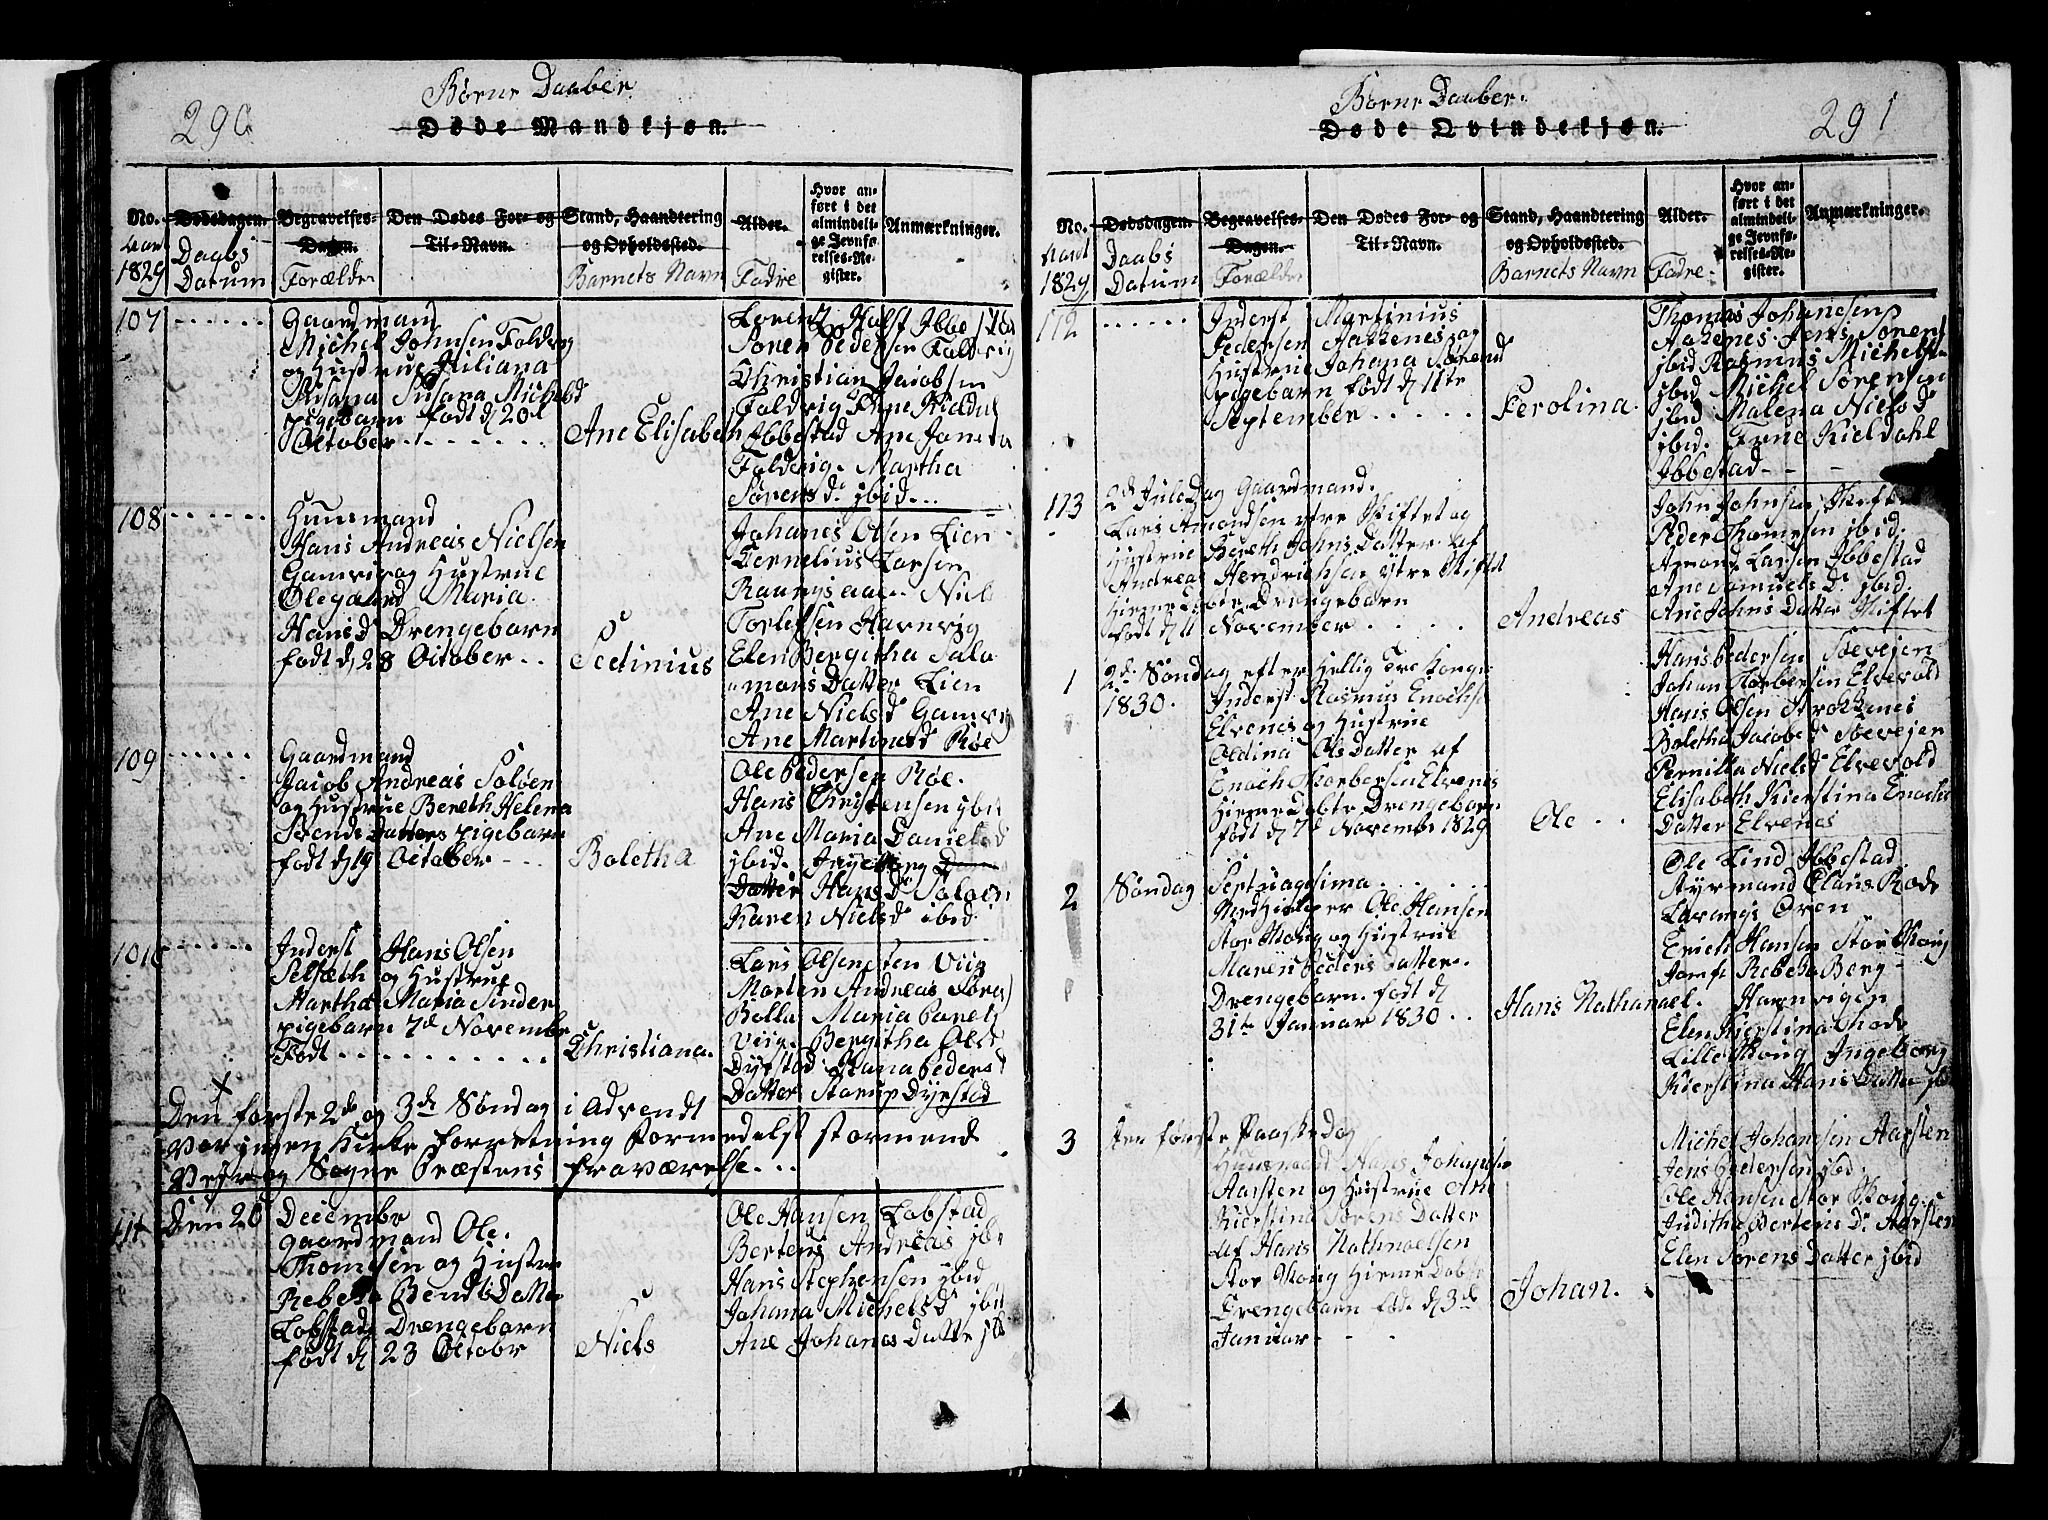 290
Børne Daaber
Døde Mandkjøn.
No.
Aar
1829
Dødsdagen.
Daabs
Datum
Begravelses-
Dagen.
Forældre
Den Dødes For- og
Til-Navn.
Stand, Haandtering
og Opholdssted.
Barnets Navn
Alder.
Fadre
Hvor an-
ført i det
almindeli-
ge Jevnfø-
relses-Re-
gister.
Anmærkninger.
107
Gaardmand
Michel Johnsen Foldvig
og Hustrue Juliana
Susana Michelsd
pigebarn født d 20
October
Ane Elisabeth
Lorentz Holst Ibbestad
Søren Pedersen Foldvig
Christian Jacobsen
Foldvig
Ibbestad Ane
Foldvig. Martha
Sørensd. ibid...
108
Huusmand
Hans Andreas Nielsen
Gamvig og Hustrue
Olegaard Maria
Hansd Drengebarn
født d, 28 October..
Johanes Olsen Lien
Cornelius Larsen
Niels
Torlefsen Havnvig
Elen Bergitha Salo
mons Datter Lien
Ane Nielsd Gamvig
Ane Martinusd Røe
109
Gaardmand
Jacob Andreas Soløen
og Hustrue Bereth Helena
Svends Datters pigebarn
født d 19 October
Boletha
Ole Pedersen Røe.
Hans Christensen ibid
Ane Maria Danielsd
ibid. Ingeborg
Datter Hansd Soløen
Karen Nielsd ibid
1010
Inderst Hans Olsen
Selseth og Hustrue
Martha Maria Sinders
pigebarn 7d Novembr
Født
Christiana.
Lars Olsen Sten Viig
Morten Andreas
Maria
Viig. Bergitha Olsd
Dyrstad Hana Peders
Datter Storup Dyrstad
Den første 2de og 3de Søndag i Advendt
var ingen Kirke forretning formedelst stormende
Veir og Sogne Præstens fraværelse...
111
Den 26 Decembr
Gaardmand Ole
Thomesen og Hustru
Rebeka Bendts Datter
Lobstad Drengebarn
født d 23 Octobr
Niels
Ole Hansen Lobstad
Bertens Andreas ibd
Hans Stephensen ibid
Johana Michelsd ibid
Ane Johanes Datte ibd
291
Børne Daaber.
Døde Qvindekjøn.
No.
Aaret
1829
Dødsdagen.
Daabs
Datum
Begravelses-
Dagen.
Forældre
Den Dødes For- og
Til-Navn.
Stand, Haandtering
og Opholdssted.
Barnets Navn
Alder.
Fadre.
Hvor an-
ført i det
almindeli-
ge Jevnfø-
relses-Re-
gister.
Anmærkninger.
112
Inderst Martinius
Pedersen Aakenes og
Hustrue Johana Sørensd
pigebarn født d 11te
September
Ferolina.
Thomas Johanesen
Aakenes. Jens Sørens
ibid Rasmus Michelsen
ibid Michel Sørensen
ibid Malena Nielsd
ibid. Frue Kieldahl
Ibbestad
113
2d Jule Dag Gaardmand.
Lars Amondsen ytre Skiftet og
Hustrue Bereth Johns Datter. af
Andreas Hendrichsen ytre Skiftet
Hieme Døbte Drengebarn
født d 11 November
Andreas
John Johnsen Skiftet
Peder Thomesen ibid.
Amond Larsen Ibbestad
Ane Samuels D. ibid.
Ane Johns Datter Skiftet
1
2d Søndag efter Hellig Tre Konge
1830.
Inderst Rasmus Enochs
Elvenes og Hustrue
Oldina Ols Datter af
Enoch Thorbersen Elvenes
Hieme Døbte Drengebarn
født d 7d Novembr 1829
Ole
Hans Pedersen Søvejen
Johan Thorbersen Elvevold
Hans Olsen Strokkenes
Boletha Jacobsd Søvejen
Pernilla Nielsd Elvevold
Elisabeth Kierstina Enochs
Datter Elvenes
2
Søndag Septuagesima
Medhielper Ole Hansen
Stor Skoug og Hustrue
Maren Peders Datter.
Drengebarn. født d
31te Januar 1830
Hans Nathanael.
Ole Lind Ibbestad
Styrmand Claus Rode
Øren
Erich Hansen Stor Skoug
Jomf Rebeka Berg
Havnvigen
Elen Kierstina Rode
Lille Skoug Ingeborg
Kierstina Hans Datte ibd
3
Den første Paaskedag
Huusmand Hans Johansen
Aarsten og Hustrue Ane
Kierstina Sørens Datter
af Hans Nathnaelsen
Stor Skoug Hieme Døbt
Drengebarn fød. d 3de
Januar
Johan.
Michel Johansen Aarsten
Jens Pedersen ibid.
Ole Hansen Stor Skoug
Juditha Bertens D. Aarsten
Elen Sørens Datter ibid